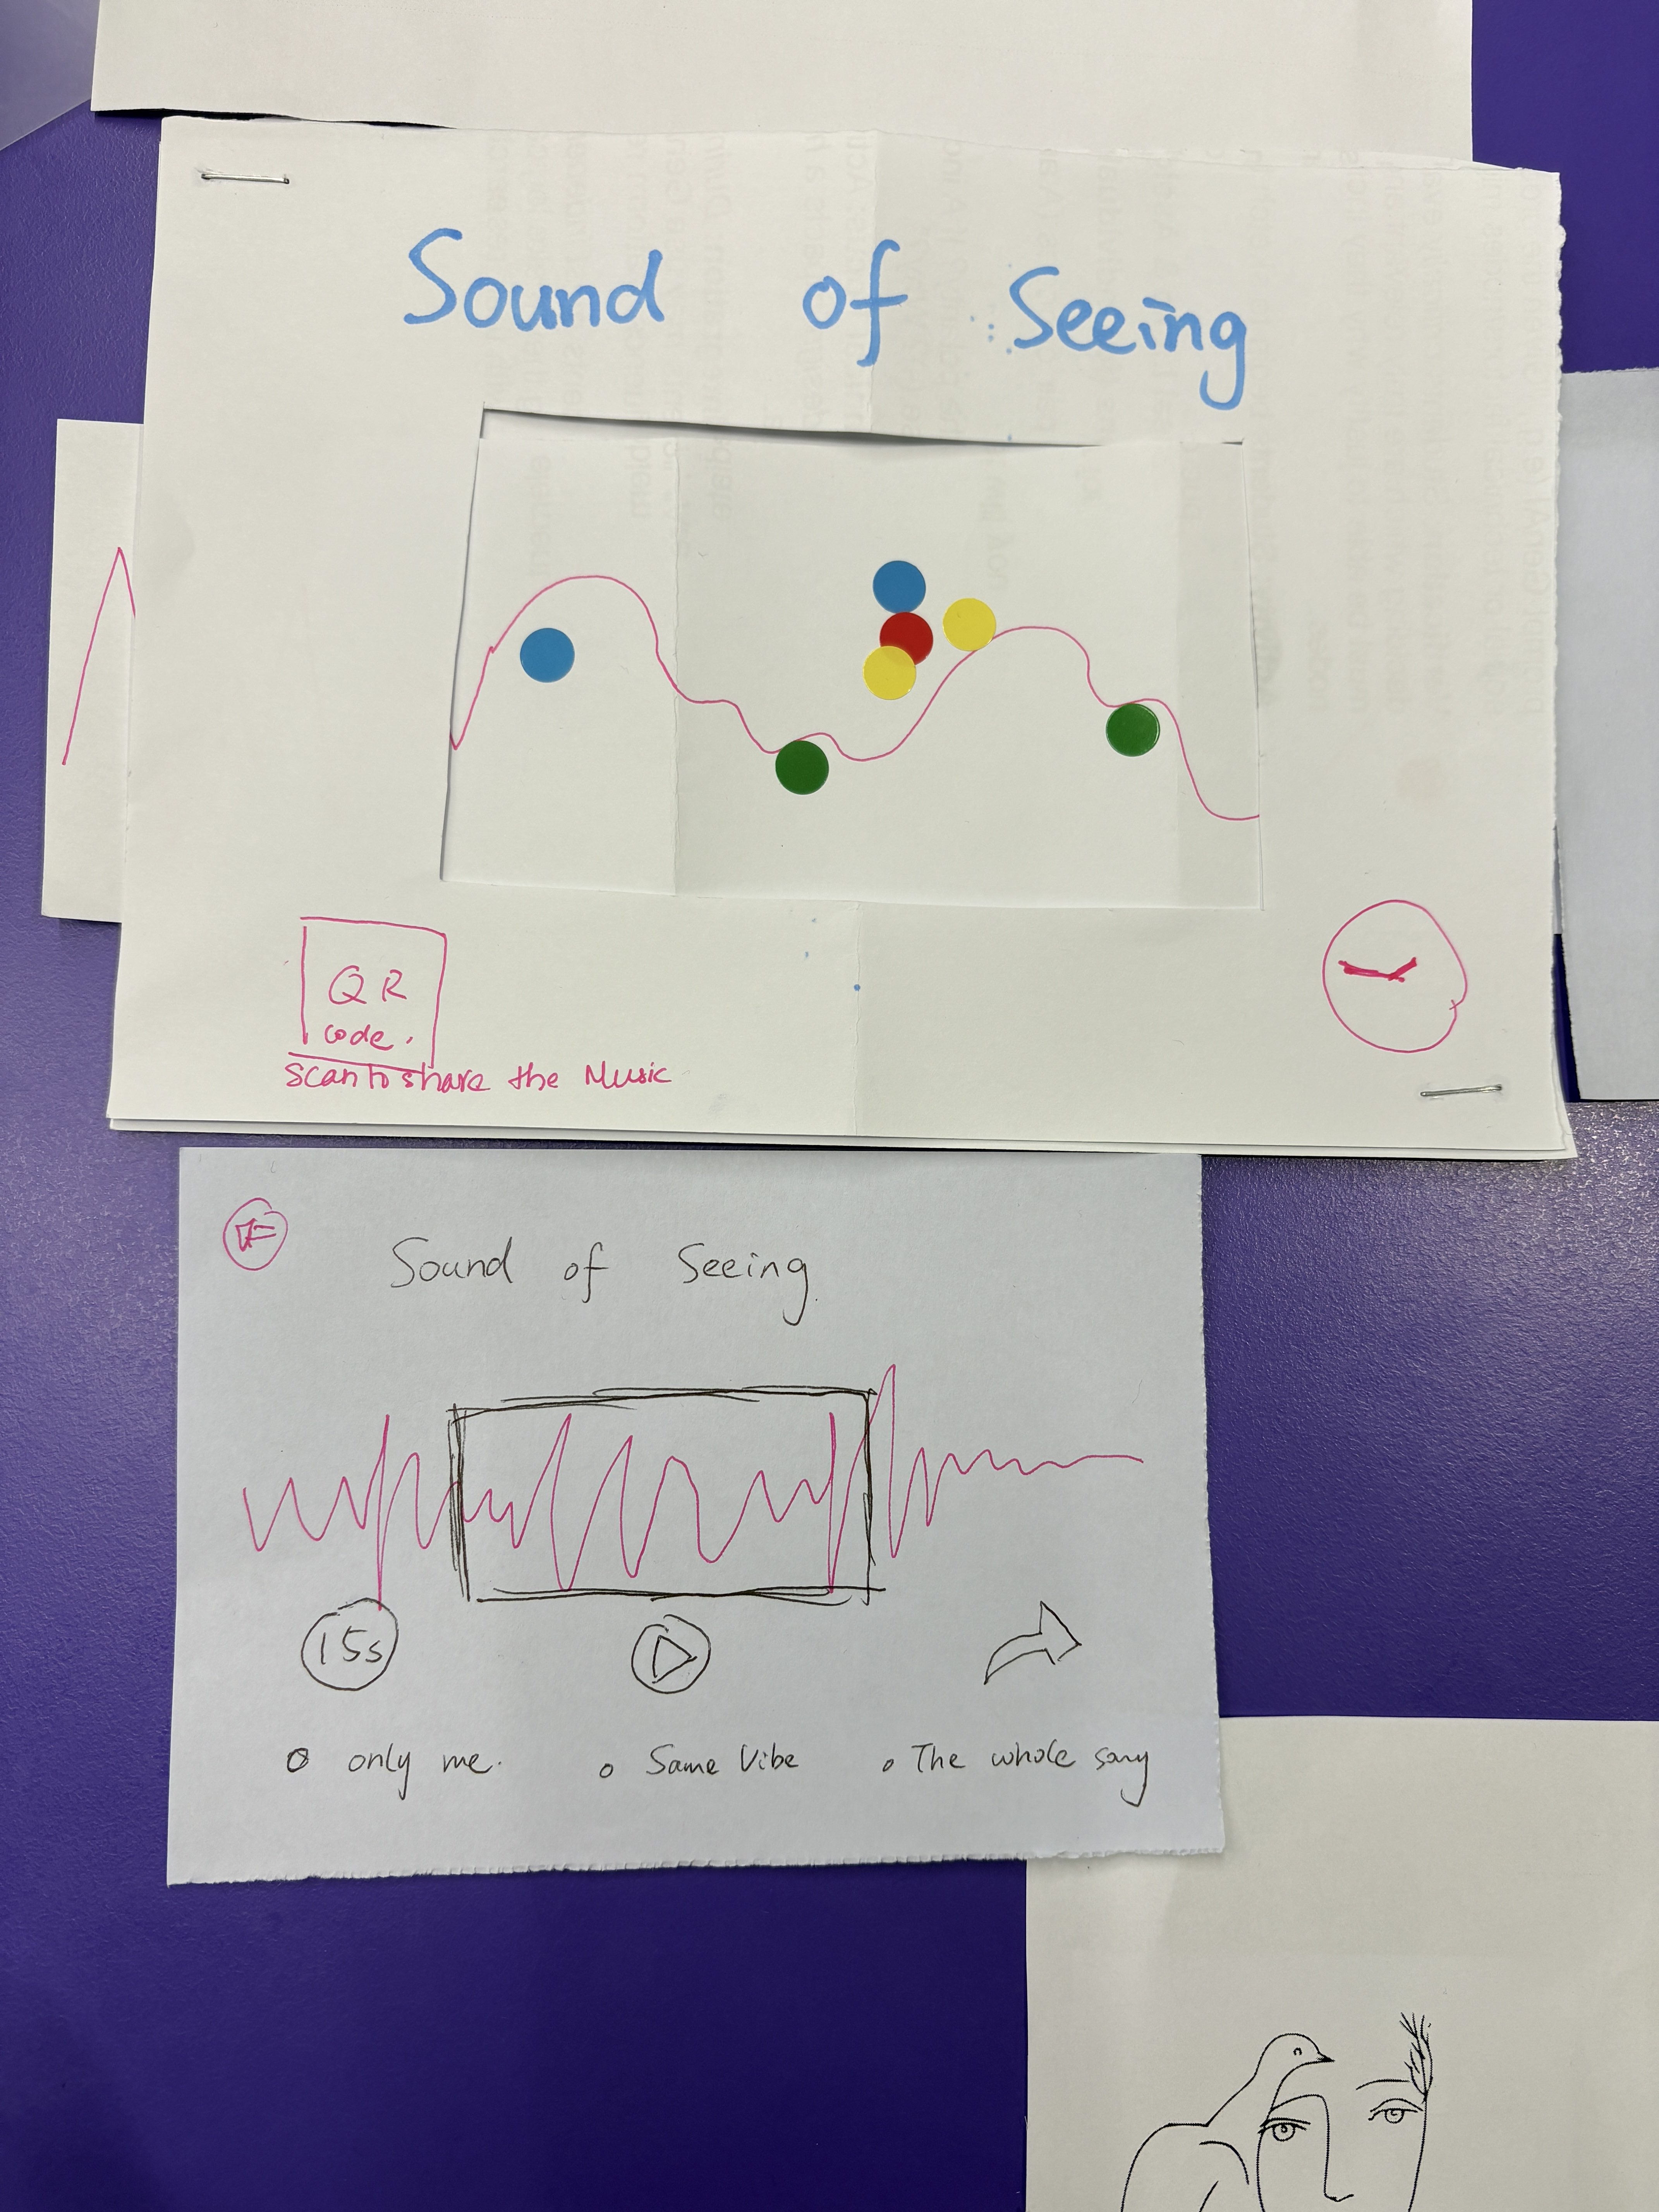 Sound of Seeing
QR
code.
Scan to share the Music
Sound of Seeing
15s
only me.
Same Vibe
The whole song